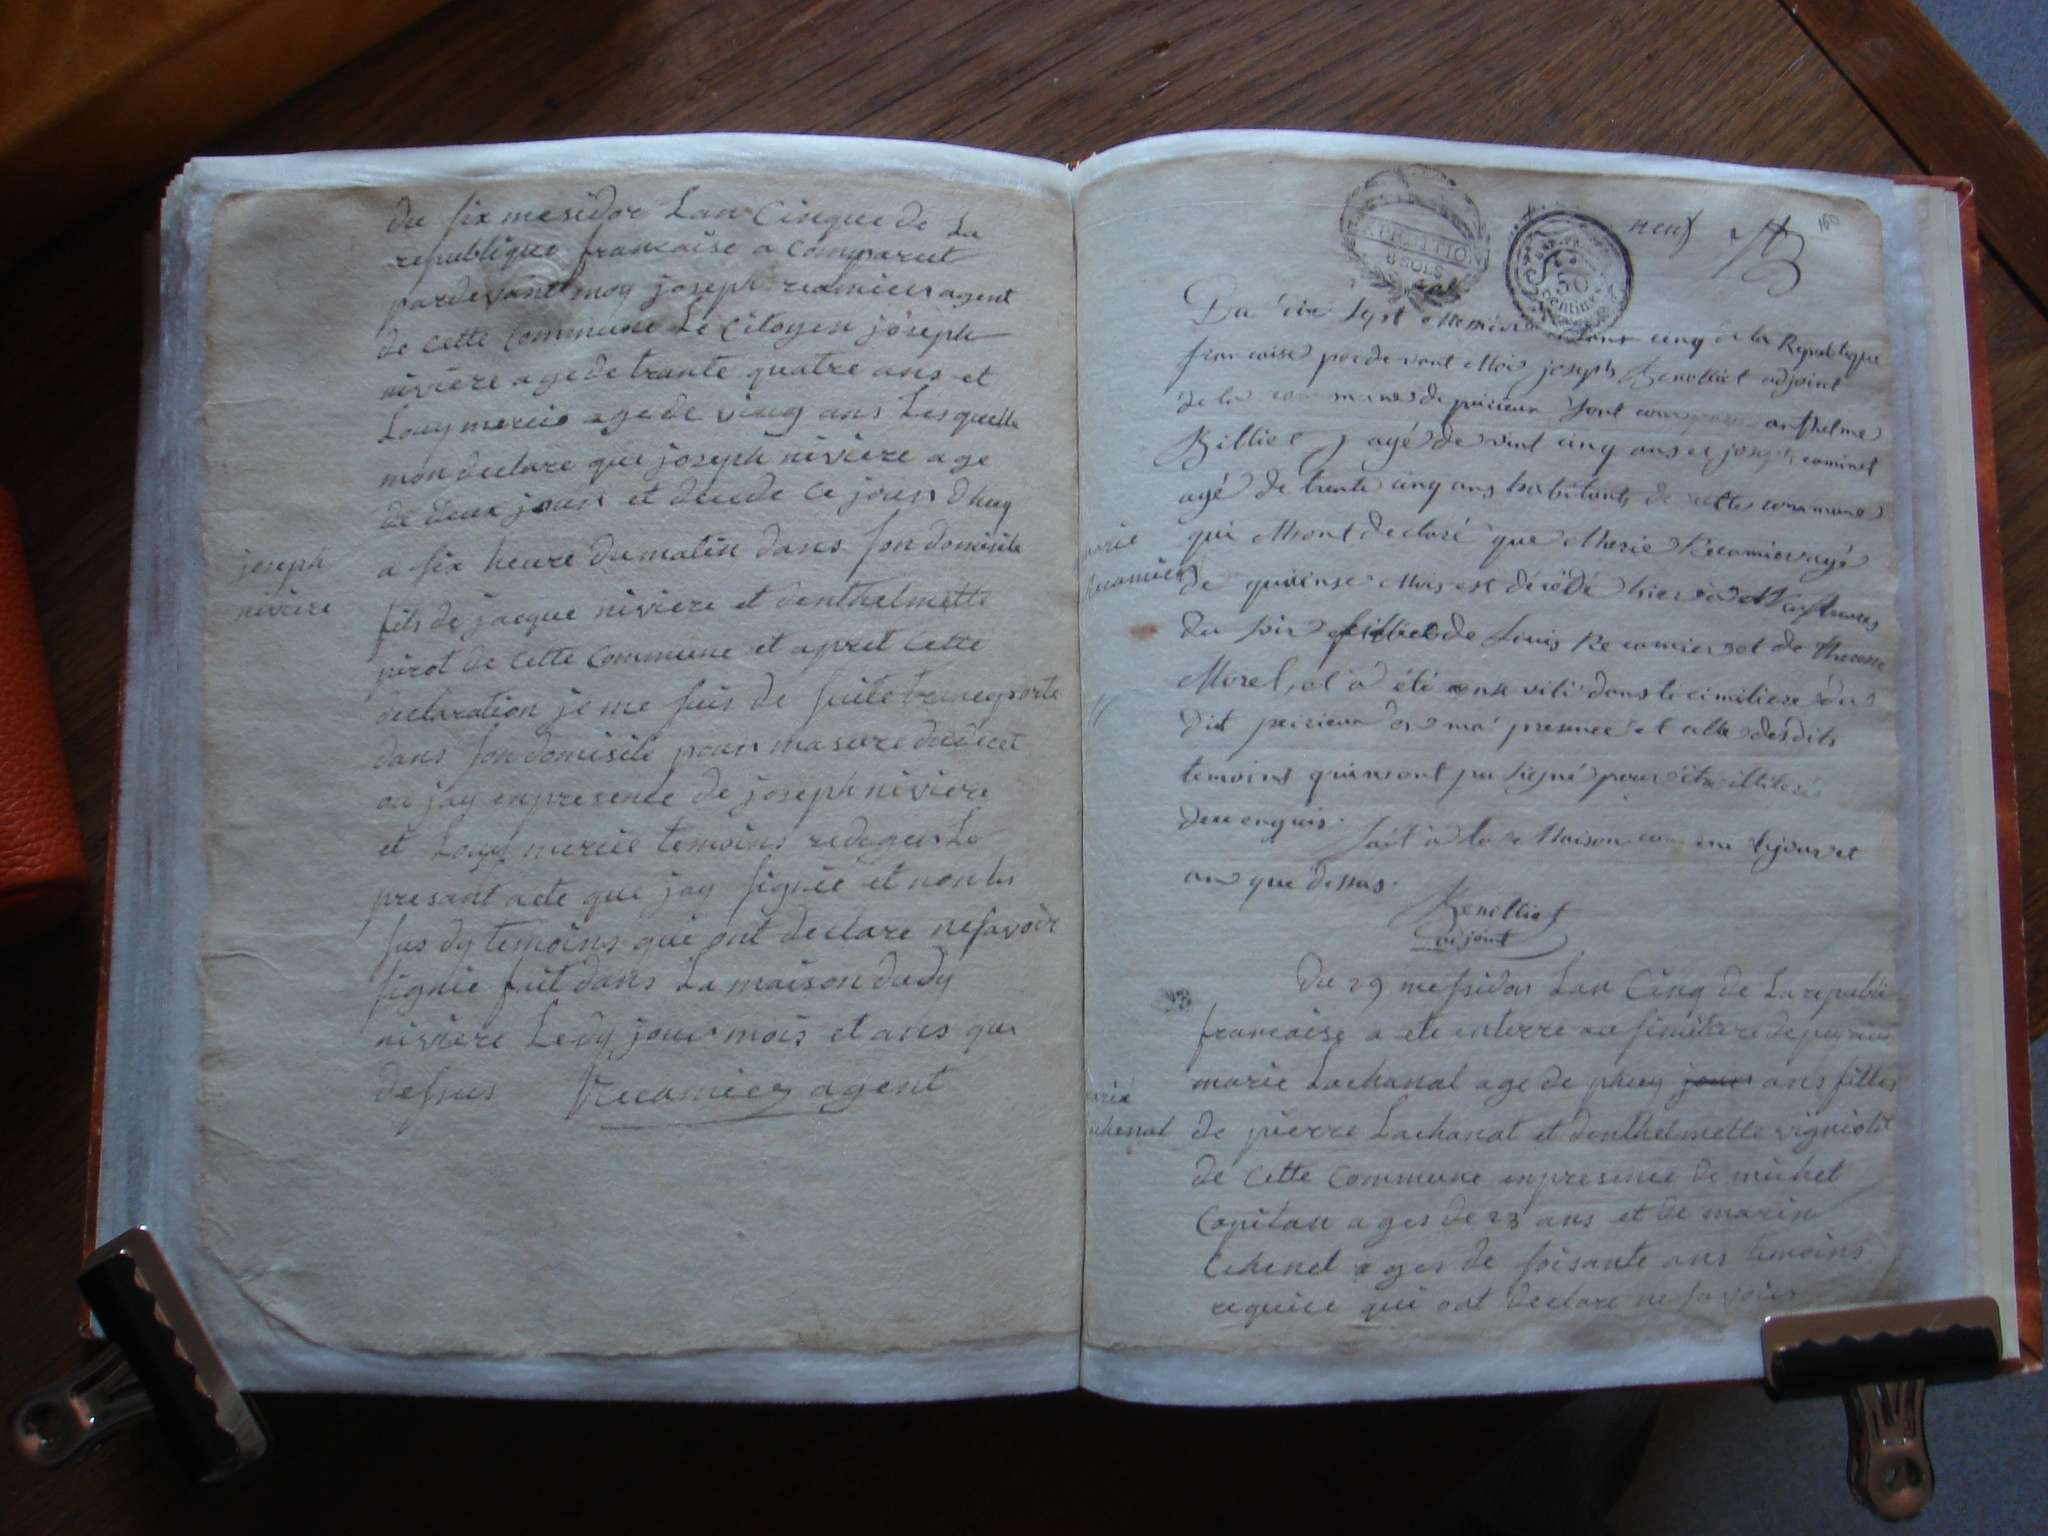 du six mesidor Lan Cinque de La
republique francaise a Comparut
pardevant moy joseph reamier agent
de cette Commune Le Citoyen joseph
niviere age de trante quatre ans et
Louy mercie age de ving ans Lesquelle
mon declare que joseph niviere age
de deux jour et decede ce jour dhuy
joseph
niviere
a six heure du matin dans son domisile
fils de jacque niviere et denthelmette
pirot de cette Commune et apret cette
declaration je me suis de suite transporte
dans son domisile pour masure dudecet
ou jay enpresence de joseph niviere
et Louy mercie temoins rediger Le
present acte que jay signée et non les
sus dy temoins que ont declare ne savoir
signie fait dans La maison dudy
niviere Ledy jour mois et ans que
dessus Recamier agent
EXPEDITION
8 SOLS
50
centimes
neuf
160
Du dix sept Lans cinq de la Republique
francaise pardevant Moi joseph Benolliet adjoint
de la commune de peirieux sont anthelme
Billiet agé de vint cinq ans et joseph caminet
agé de trente cinq ans habitants de cette commune
qui Mont declaré que Marie Recamier agé
Recamier
de quinse Mois est décédé hier
du soir fillie de Louis Recamier et de Therese
Morel, et a été ense veli dans le cimitiere du
dit peirieux en ma presence et celle desdits
temoins qui nont pu signé pour être illiteré
de ce enquis.
fait a la Maison commune le jour et
an que dessus.
Benolliet
adjoint
Du 29 messidor Lan Cinq de La republi
francaise a ete enterre au simitiere de peyrieu
marie Lachanal age de jour ans filles
de pierre Lachanal et denthelmette
de cette Commune enpresence de michel
Capitan ages de 23 ans et de marin
Cehenel ages de soisante ans temoins
requise que ont declare ne savoir